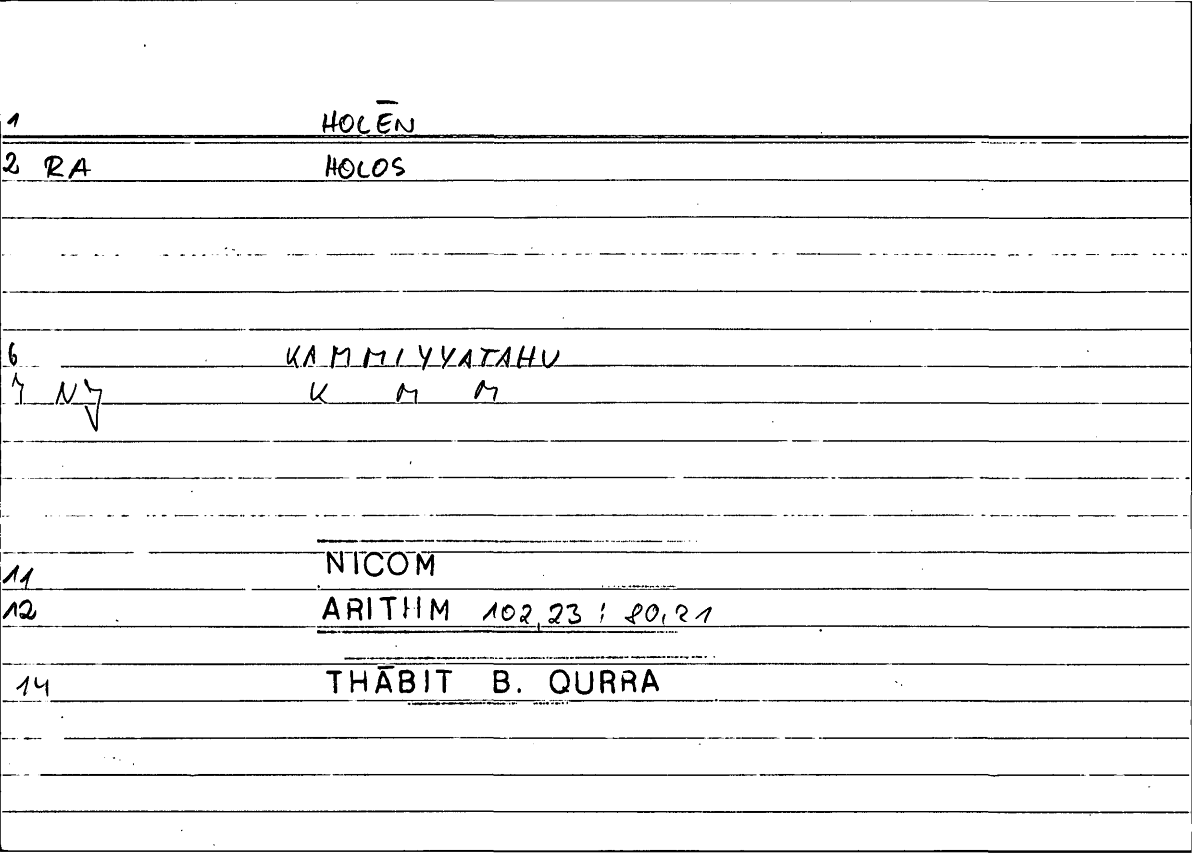 1 HOLĒN
2 RA HOLOS
6 KAMMIYYATAHU
7 NJ K M M
11 NICOM
12 ARITHM 102,23 ; 80,21
14 THĀBIT B. QURRA